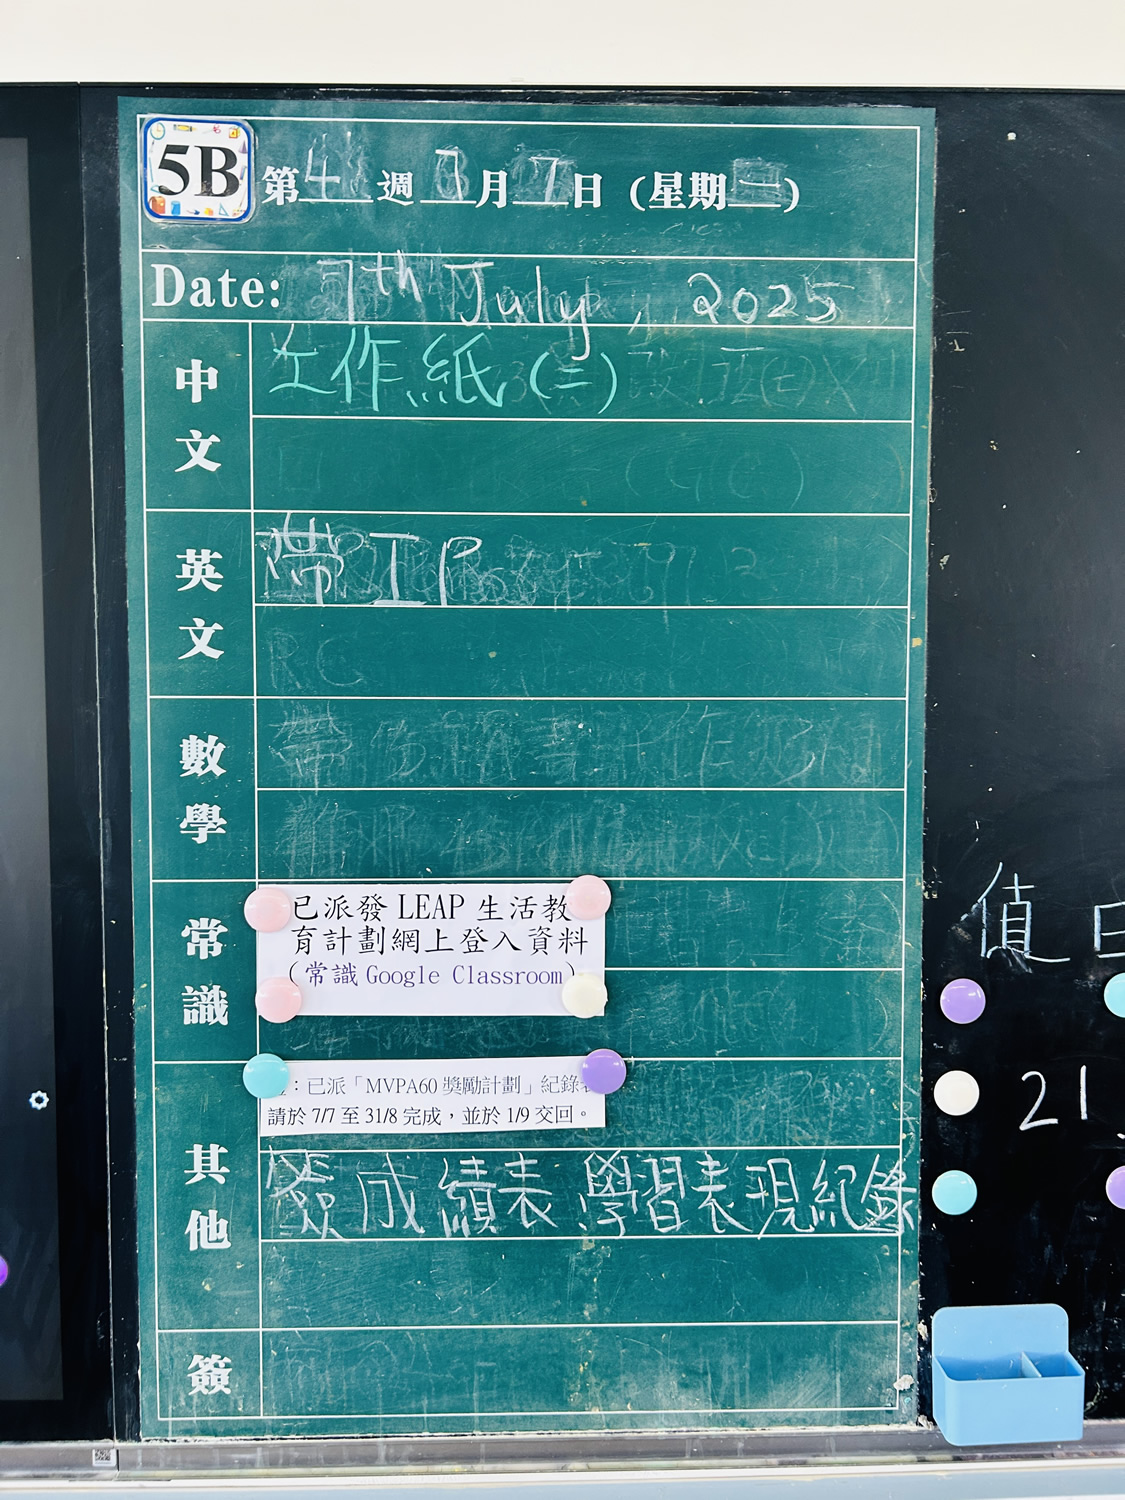 5B 第4週 7月7日 (星期一)
Date: 7th July, 2025
中文
工作紙(二)
英文
帶 IP
RC
數學
常識
已派發 LEAP 生活教
育計劃網上登入資料
(常識 Google Classroom)
其他
：已派「MVPA60 獎勵計劃」紀錄
請於 7/7 至 31/8 完成，並於 1/9 交回。
簽成績表 學習表現紀錄
簽
值日
21